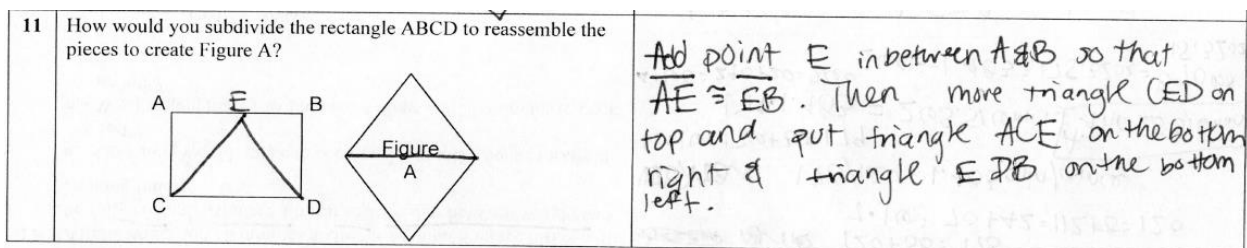 11 How would you subdivide the rectangle ABCD to reassemble the
pieces to create Figure A?
A E B
C D
Figure
A
Add point E inbetween A & B so that
AE ≅ EB. Then move triangle CED on
top and put triangle ACE on the bottom
right & triangle EDB on the bottom
left.